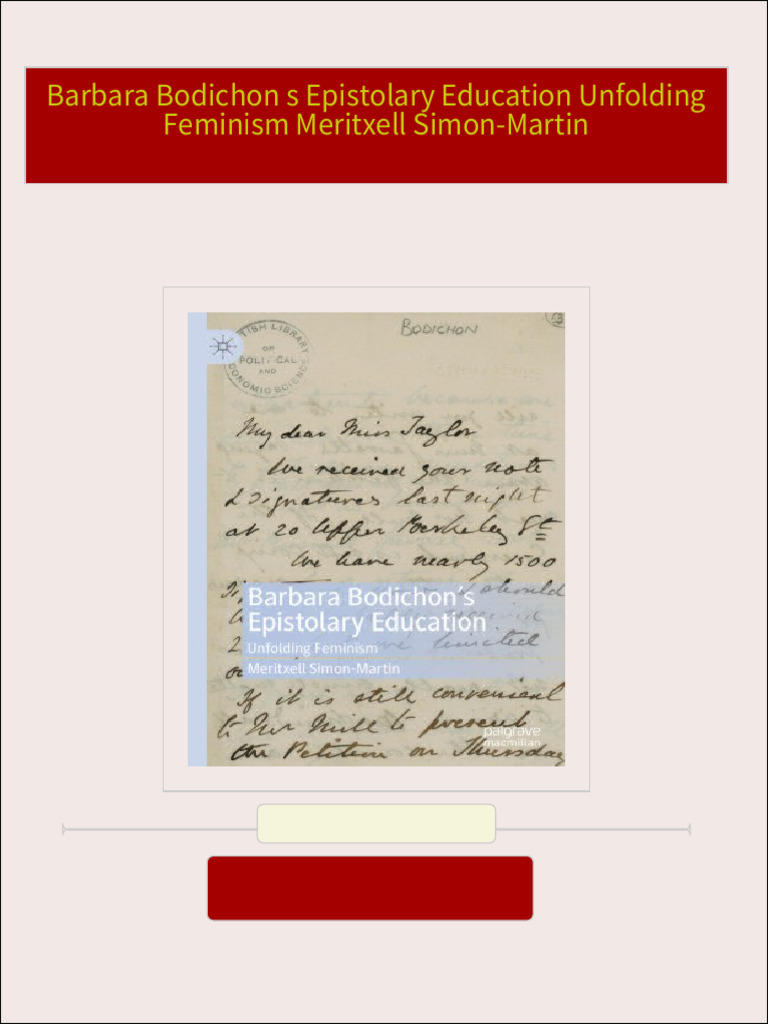 Barbara Bodichon s Epistolary Education Unfolding
Feminism Meritxell Simon-Martin
BODICHON
TISH LIBRARY
OF
POLITICAL
AND
ONOMIC SCIENCE
My dear Miss Taylor
We received your note
& Signatures last night
at 20 Upper Berkeley St
We have nearly 1500
should
Barbara Bodichon's
Epistolary Education
Unfolding Feminism
Meritxell Simon-Martin
If it is still convenient
to Mr Mill to present
the Petition on Thursday
palgrave
macmillan